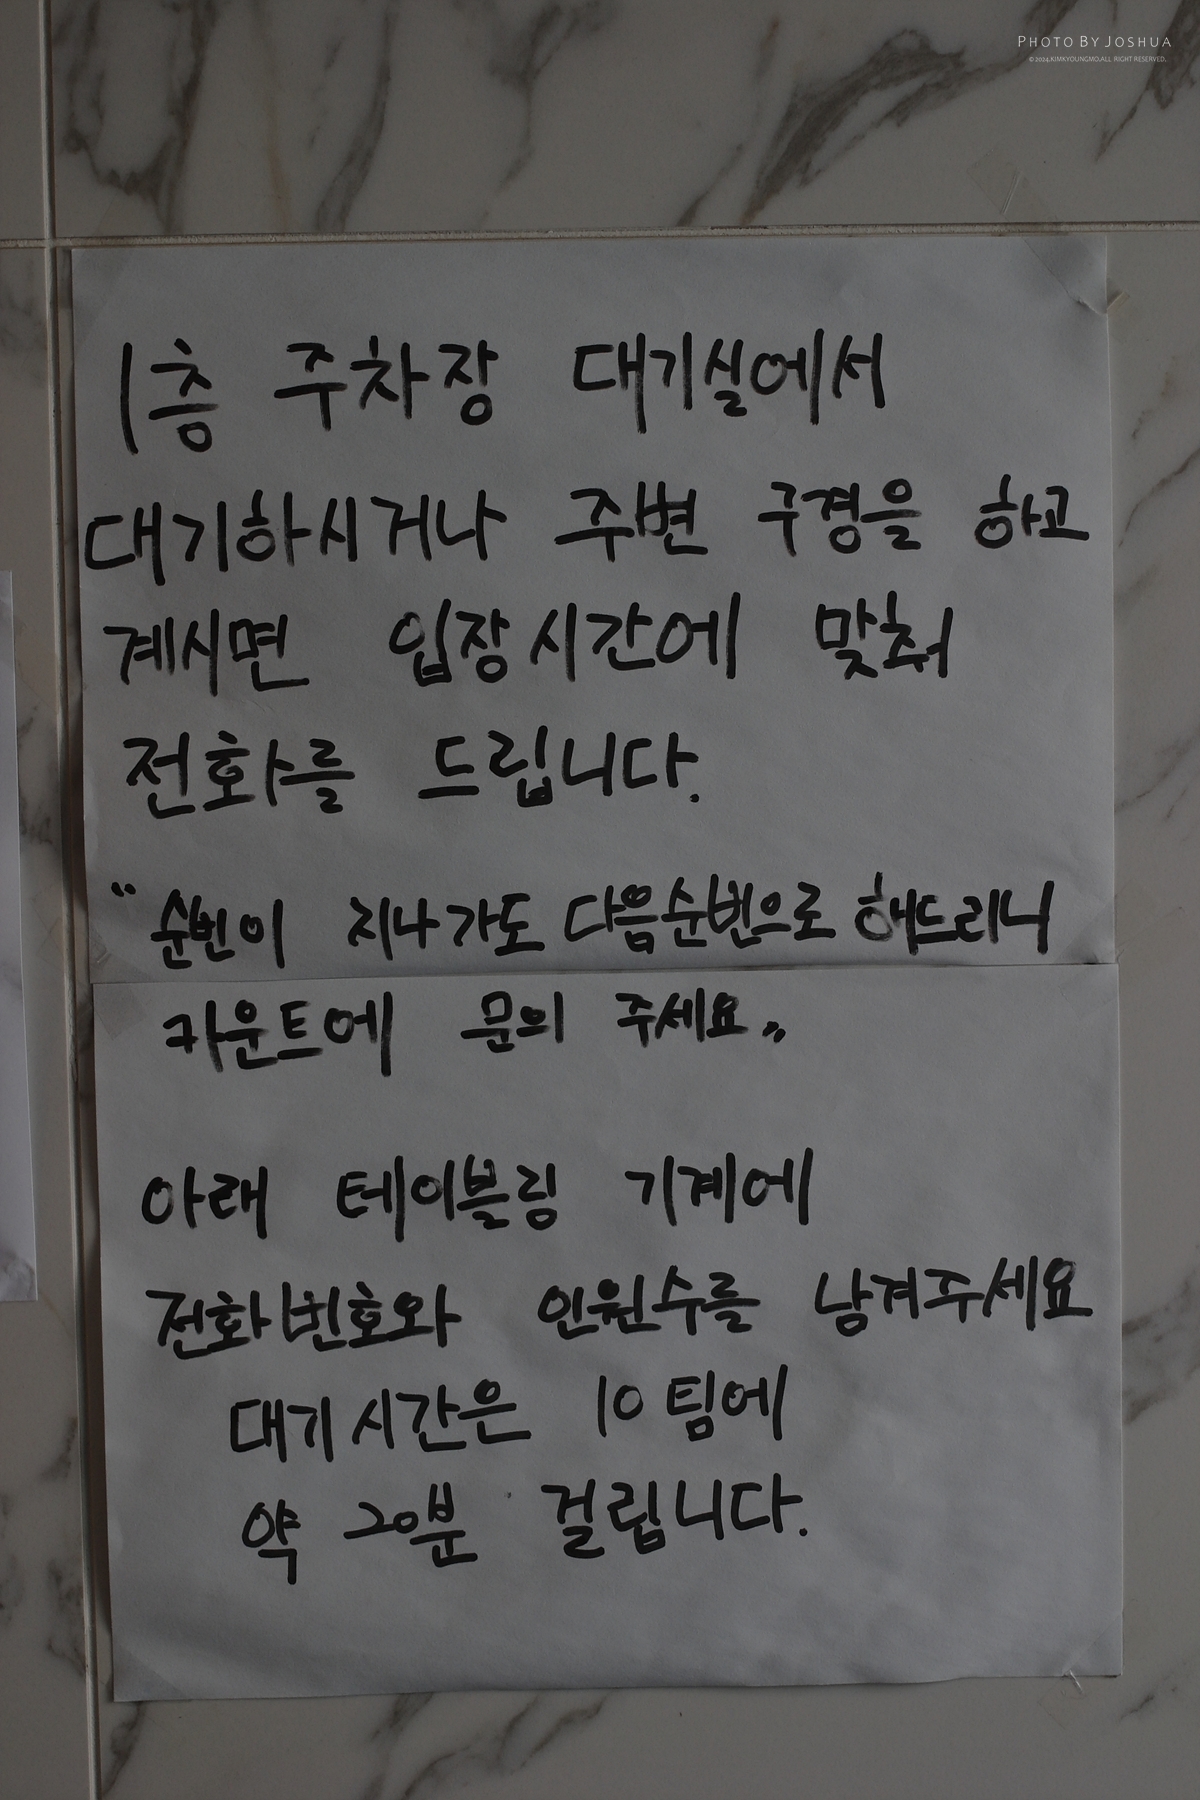 PHOTO BY JOSHUA
©2024.KIMKYOUNGMO.ALL RIGHT RESERVED.
1층 주차장 대기실에서
대기하시거나 주변 구경을 하고
계시면 입장시간에 맞춰
전화를 드립니다.
"순번이 지나가도 다음순번으로 해드리니
카운트에 문의 주세요"
아래 테이블링 기계에
전화번호와 인원수를 남겨주세요
대기시간은 10팀에
약 20분 걸립니다.